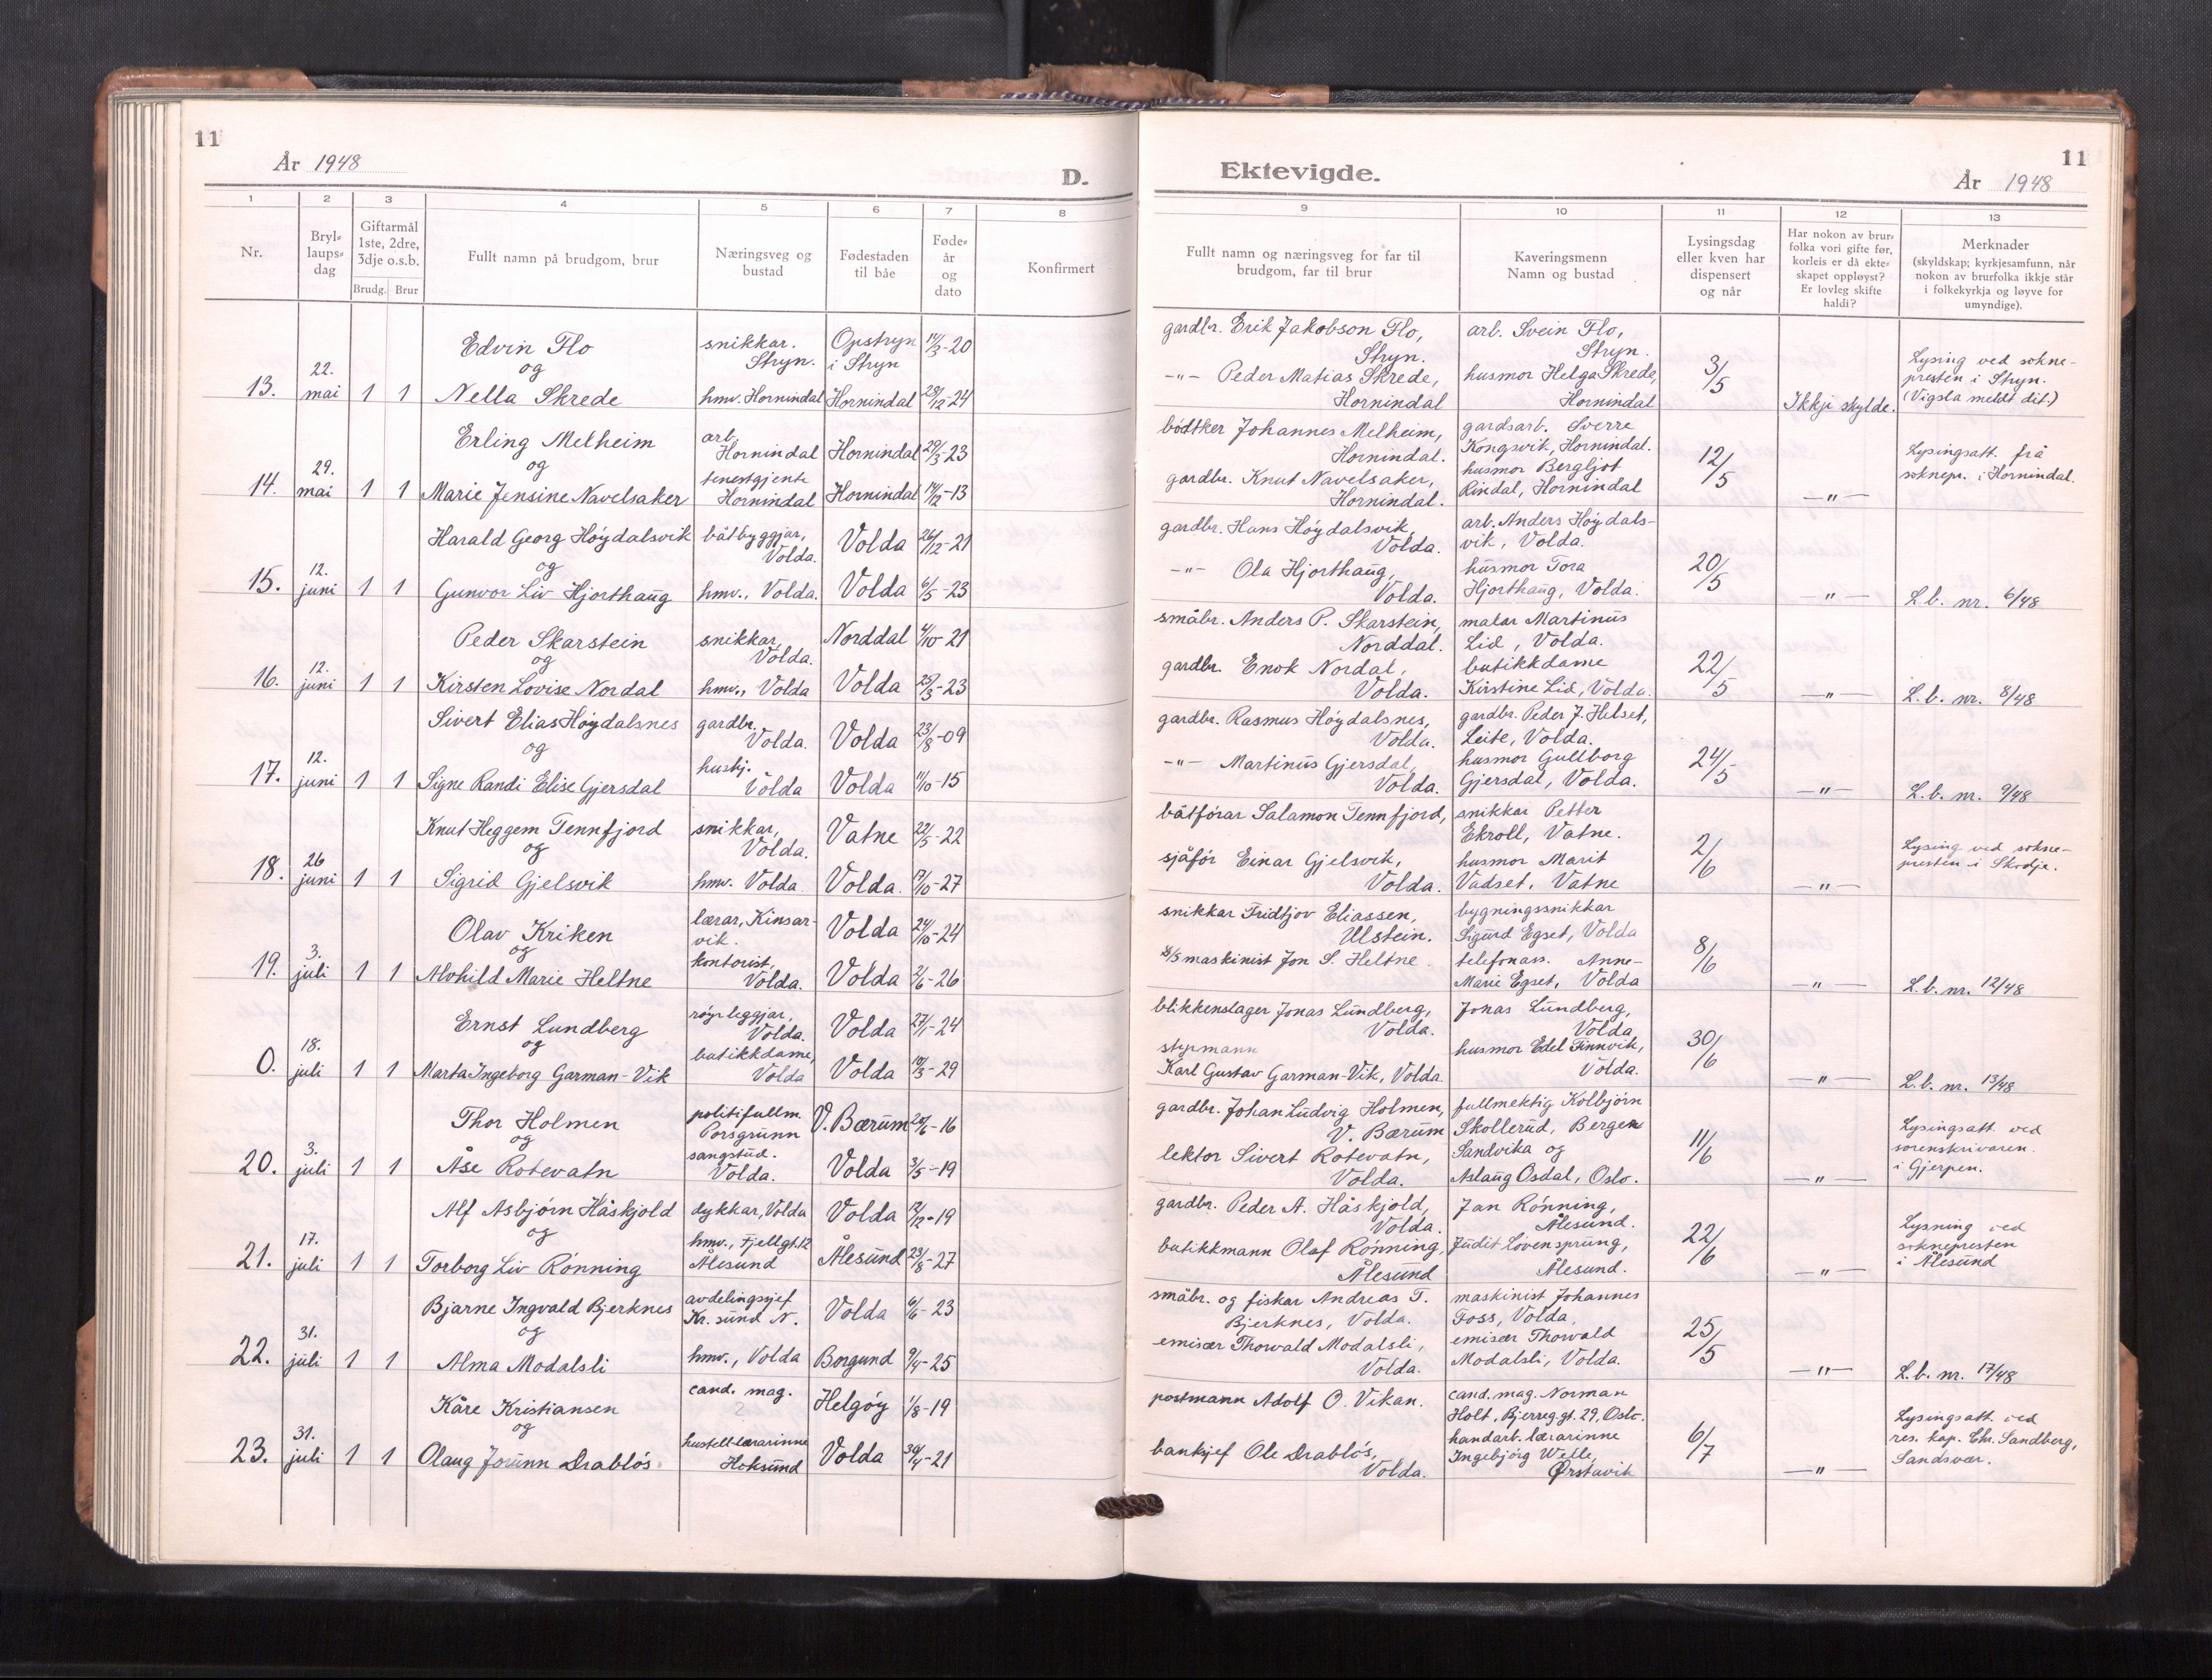 11
År 1948
D.
1 2 3 4 5 6 7 8
Nr.
Bryl=
laups=
dag
Giftarmål
1ste, 2dre,
3dje o.s.b.
Brudg. Brur
Fullt namn på brudgom, brur
Næringsveg og
bustad
Fødestaden
til båe
Føde=
år
og
dato
Konfirmert
Edvin Flo snikkar. Opstryn 14/3-20
og Stryn. i Stryn
22.
13. mai 1 1 Nella Skrede hmv. Hornindal Hornindal 28/12-24
Erling Melheim arb. Hornindal Hornindal 29/3-23
og
29.
14. mai 1 1 Marie Jensine Navelsaker tenestgjente Hornindal Hornindal 14/12-13
Harald Georg Høydalsvik båtbyggjar, Volda. Volda 26/12-21
og
12.
15. juni 1 1 Gunvor Liv Hjorthaug hmv., Volda. Volda 6/5-23
Peder Skarstein snikkar, Volda. Norddal 4/10-21
og
12.
16. juni 1 1 Kirsten Lovise Nordal hmv., Volda Volda 25/3-23
Sivert Elias Høydalsnes gardbr. Volda. Volda 23/8-09
og
12.
17. juni 1 1 Signe Randi Elise Gjersdal hushj. Volda Volda 11/10-15
Knut Heggem Tennfjord snikkar, Volda. Vatne 22/5-22
og
26
18. juni 1 1 Sigrid Gjelsvik hmv. Volda Volda. 17/10-27
Olav Kriken lærar, Kinsar-
vik. Volda 24/10-24
og
3.
19. juli 1 1 Alvhild Marie Heltne kontorist, Volda. Volda 2/6-26
Ernst Lundberg røyrleggjar, Volda. Volda 27/1-24
og
18.
0. juli 1 1 Marta Ingeborg Garman-Vik butikkdame, Volda Volda 10/3-29
Thor Holmen politifullm. Porsgrunn V. Bærum 20/6-16
og
3.
20. juli 1 1 Åse Rotevatn sangstud. Volda. Volda 3/5-19
Alf Asbjørn Håskjold dykkar, Volda Volda 12/12-19
og
17.
21. juli 1 1 Torborg Liv Rønning hmv., Fjellgt. 12 Ålesund Ålesund 23/8-27
Bjarne Ingvald Bjerknes avdelingssjef Kr. sund N. Volda 6/6-23
og
31.
22. juli 1 1 Alma Modalsli hmv., Volda Borgund 9/4-25
Kåre Kristiansen cand. mag. Helgøy 1/8-19
og
31.
23. juli 1 1 Olaug Jorunn Drabløs. hustell-lærarinne Hoksund Volda 30/4-21
11
Ektevigde.
År 1948
9 10 11 12 13
Fullt namn og næringsveg for far til
brudgom, far til brur
Kaveringsmenn
Namn og bustad
Lysingsdag
eller kven har
dispensert
og når
Har nokon av brur=
folka vori gifte før,
korleis er då ekte=
skapet oppløyst?
Er lovleg skifte
haldi?
Merknader
(skyldskap; kyrkjesamfunn, når
nokon av brurfolka ikkje står
i folkekyrkja og løyve for
umyndige).
gardbr. Erik Jakobson Flo, arb. Svein Flo,
Stryn. Stryn.
-"- Peder Matias Skrede, husmor Helga Skrede, 3/5 Lysing ved sokne-
presten i Stryn.
Hornindal Hornindal Ikkji skylde. (Vigsla meldt dit.)
bødtker Johannes Melheim, gardsarb. Sverre
Hornindal. Kongsvik, Hornindal. 12/5 Lysingsatt. frå
gardbr. Knut Navelsaker, husmor Bergljot soknepr. i Hornindal.
Hornindal. Rindal, Hornindal -"-
gardbr. Hans Høydalsvik, arb. Anders Høydals-
Volda. vik, Volda.
-"- Ola Hjorthaug, husmor Tora 20/5
Volda. Hjorthaug, Volda. -"- L.b. nr. 6/48
småbr. Anders P. Skarstein, malar Martinus
Norddal. Lid, Volda.
gardbr. Enok Nordal, butikkdame 22/5
Volda. Kirstine Lid, Volda. -"- L.b. nr. 8/48
gardbr. Rasmus Høydalsnes, gardbr. Peder J. Helset,
Volda. Leite, Volda.
-"- Martinus Gjersdal, husmor Gullborg 24/5
Volda. Gjersdal, Volda. -"- L.b. nr. 9/48
båtførar Salamon Tennfjord, snikkar Petter
Ekroll, Vatne. 2/6 Lysing ved sokne-
sjåfør Einar Gjelsvik, husmor Marit presten i Skodje.
Volda. Vadset, Vatne -"-
snikkar Fridtjov Eliassen, bygningssnikkar
Ulstein. Sigurd Egset, Volda
d/s maskinist Jon S. Heltne. telefonass. Anne- 8/6
Marie Egset, Volda -"- L.b. nr. 12/48
blikkenslager Jonas Lundberg, Jonas Lundberg,
Volda. Volda,
styrmann husmor Edel Finnvik, 30/6
Karl Gustav Garman-Vik, Volda. Volda. -"- L.b. nr. 13/48
gardbr. Johan Ludvig Holmen, fullmektig Kolbjørn
V. Bærum Skollerud, Bergen Lysingsatt. ved
lektor Sivert Rotevatn, Sandvika og 11/6 sorenskrivaren.
Volda. Aslaug Osdal, Oslo. -"- i Gjerpen.
gardbr. Peder A. Håskjold, Jan Rønning,
Volda. Ålesund. Lysning ved
butikkmann Olaf Rønning, Judit Løvensprung, 22/6 soknepresten
Ålesund Ålesund. -"- i Ålesund
småbr. og fiskar Andreas T. maskinist Johannes
Bjerknes, Volda. Foss, Volda.
emisær Thorvald Modalsli, emisær Thorvald 25/5
Volda. Modalsli, Volda. -"- L.b. nr. 17/48
postmann Adolf O. Vikan. cand. mag. Norman
Holt, Bjerregt. 29, Oslo. Lysingsatt. ved
handarb. lærarinne 6/7 res. kap. Chr. Sandberg,
banksjef Ole Drabløs, Ingebjørg Welle, Sandsvær.
Volda. Ørstavik -"-